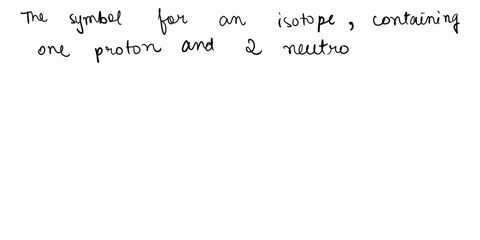 The symbol for an isotope, containing
one proton and 2 neutro